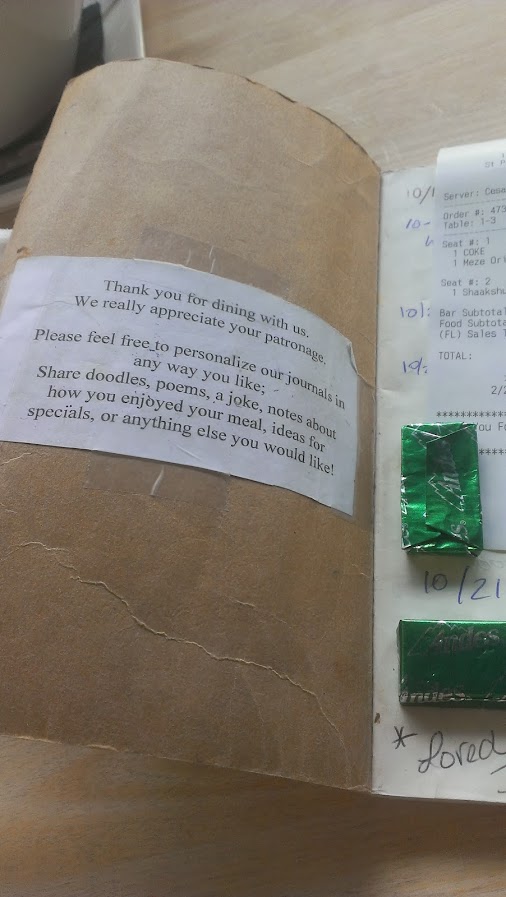 Thank you for dining with us.
We really appreciate your patronage.
Please feel free to personalize our journals in
any way you like;
Share doodles, poems, a joke, notes about
how you enjoyed your meal, ideas for
specials, or anything else you would like!
10/1
10-
10/
Server:
Order #: 473
Table: 1-3
Seat #: 1
1 COKE
1 Meze
Seat #: 2
1 Shaakshu
Bar Subtotal
Food Subtota
(FL) Sales
TOTAL:
2/2
***********
ou F
Andes
10/21
Andes
* loved